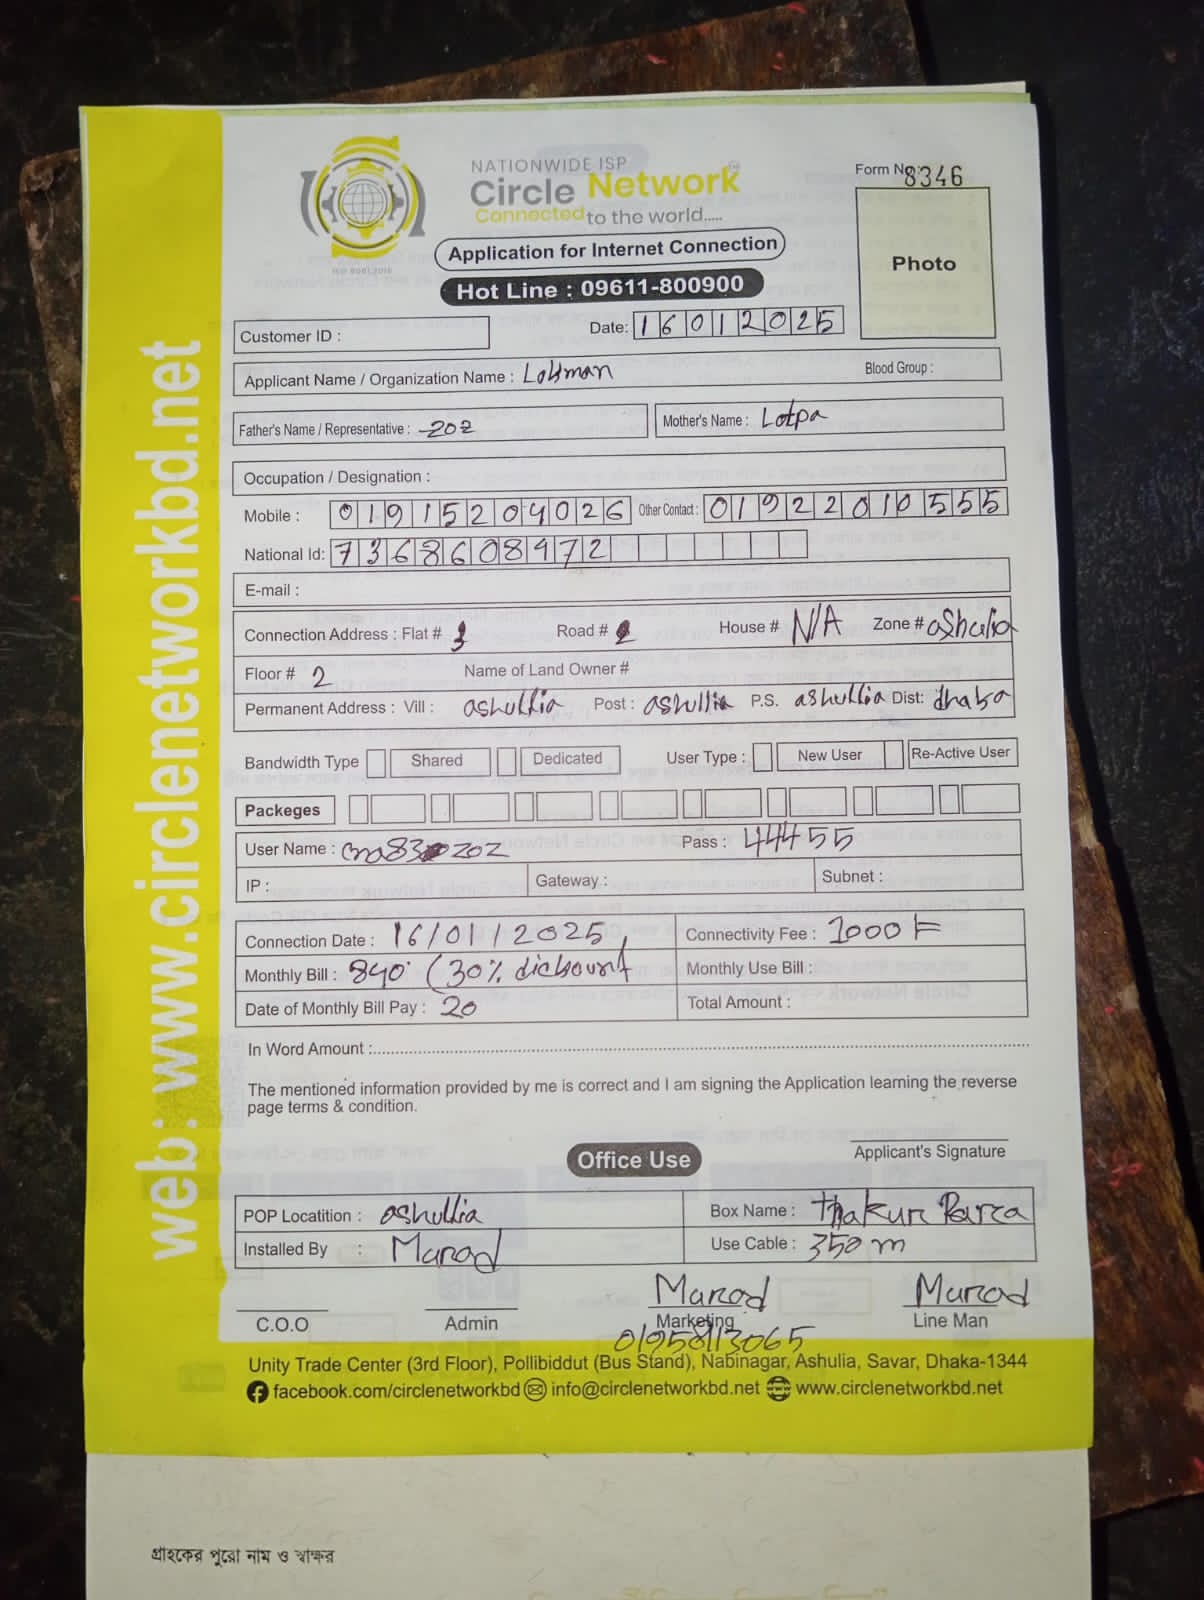 NATIONWIDE ISP
Circle Network
Connected to the world.....
Application for Internet Connection
Hot Line : 09611-800900
Form No 8346
Photo
Customer ID :
Date: 16012025
Applicant Name / Organization Name : Lokman
Blood Group :
Father's Name / Representative : 202
Mother's Name : Lotpa
Occupation / Designation :
Mobile : 01915204026 Other Contact : 01922010555
National Id: 7368608472
E-mail :
Connection Address : Flat # 3 Road # 2 House # N/A Zone # ashulia
Floor # 2 Name of Land Owner #
Permanent Address : Vill : ashullia Post : ashullia P.S. ashullia Dist: dhaka
Bandwidth Type Shared Dedicated User Type : New User Re-Active User
Packeges
User Name : Pass : 44455
IP : Gateway : Subnet :
Connection Date : 16/01/2025, Connectivity Fee : 1000
Monthly Bill : 840 (30% dicbount Monthly Use Bill :
Date of Monthly Bill Pay : 20 Total Amount :
In Word Amount :
The mentioned information provided by me is correct and I am signing the Application learning the reverse
page terms & condition.
Applicant's Signature
Office Use
POP Locatition : ashullia Box Name : Thakur Parca
Installed By : Murad Use Cable : 350 m
Murad Murad
C.O.O Admin Marketing Line Man
01958113065
Unity Trade Center (3rd Floor), Pollibiddut (Bus Stand), Nabinagar, Ashulia, Savar, Dhaka-1344
facebook.com/circlenetworkbd info@circlenetworkbd.net www.circlenetworkbd.net
web: www.circlenetworkbd.net
গ্রাহকের পুরো নাম ও স্বাক্ষর